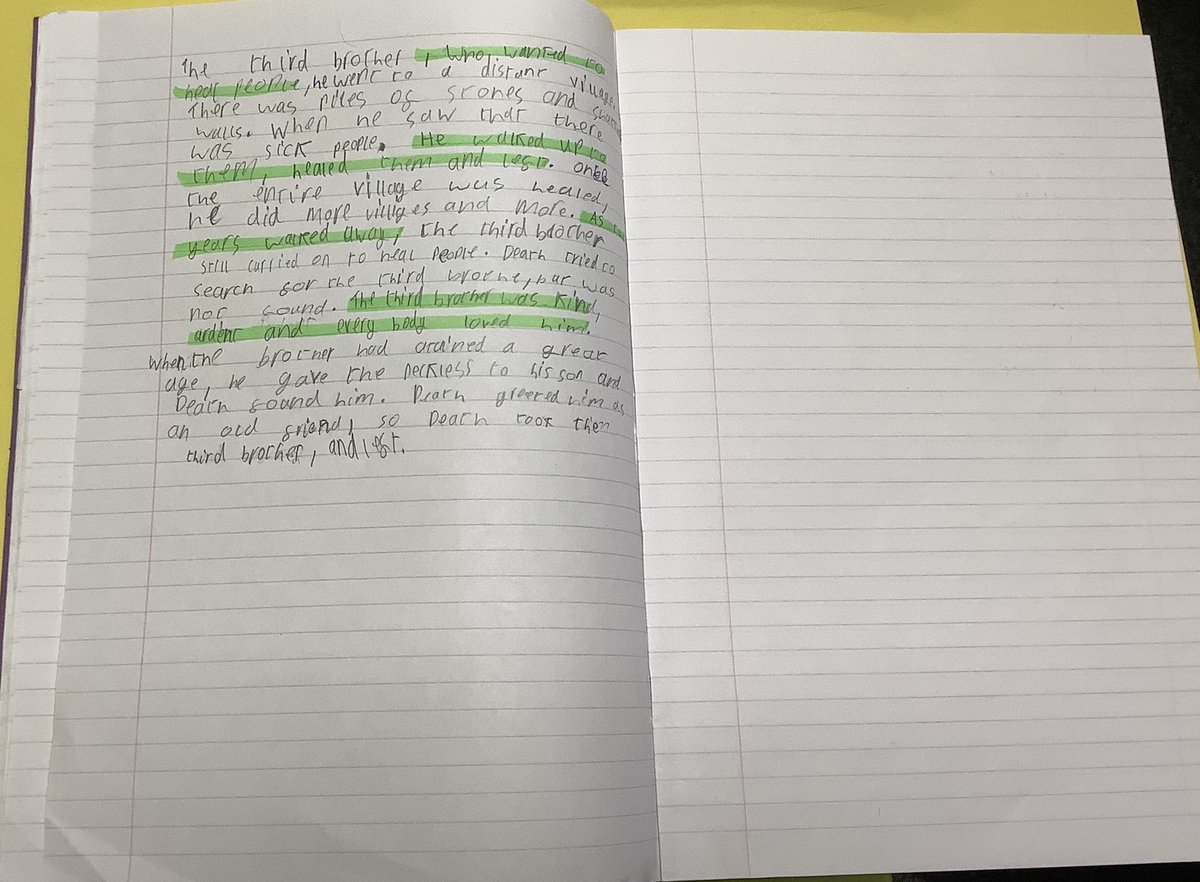 The third brother, who wanted to
heal people, he went to a distant village.
There was piles of stones and
walls. When he saw that there
was sick people. He walked up to
them, healed them and left. Once
the entire village was healed,
he did more villiges and more. As
years walked away, the third brother
still curried on to heal people. Death tried to
search for the third brothe, but was
not found. The third brother was kind,
ardent and every body loved him.
When the brother had atained a great
age, he gave the neckless to his son and
Death found him. Death greeted him as
an old friend, so Death took then
third brother, and left.